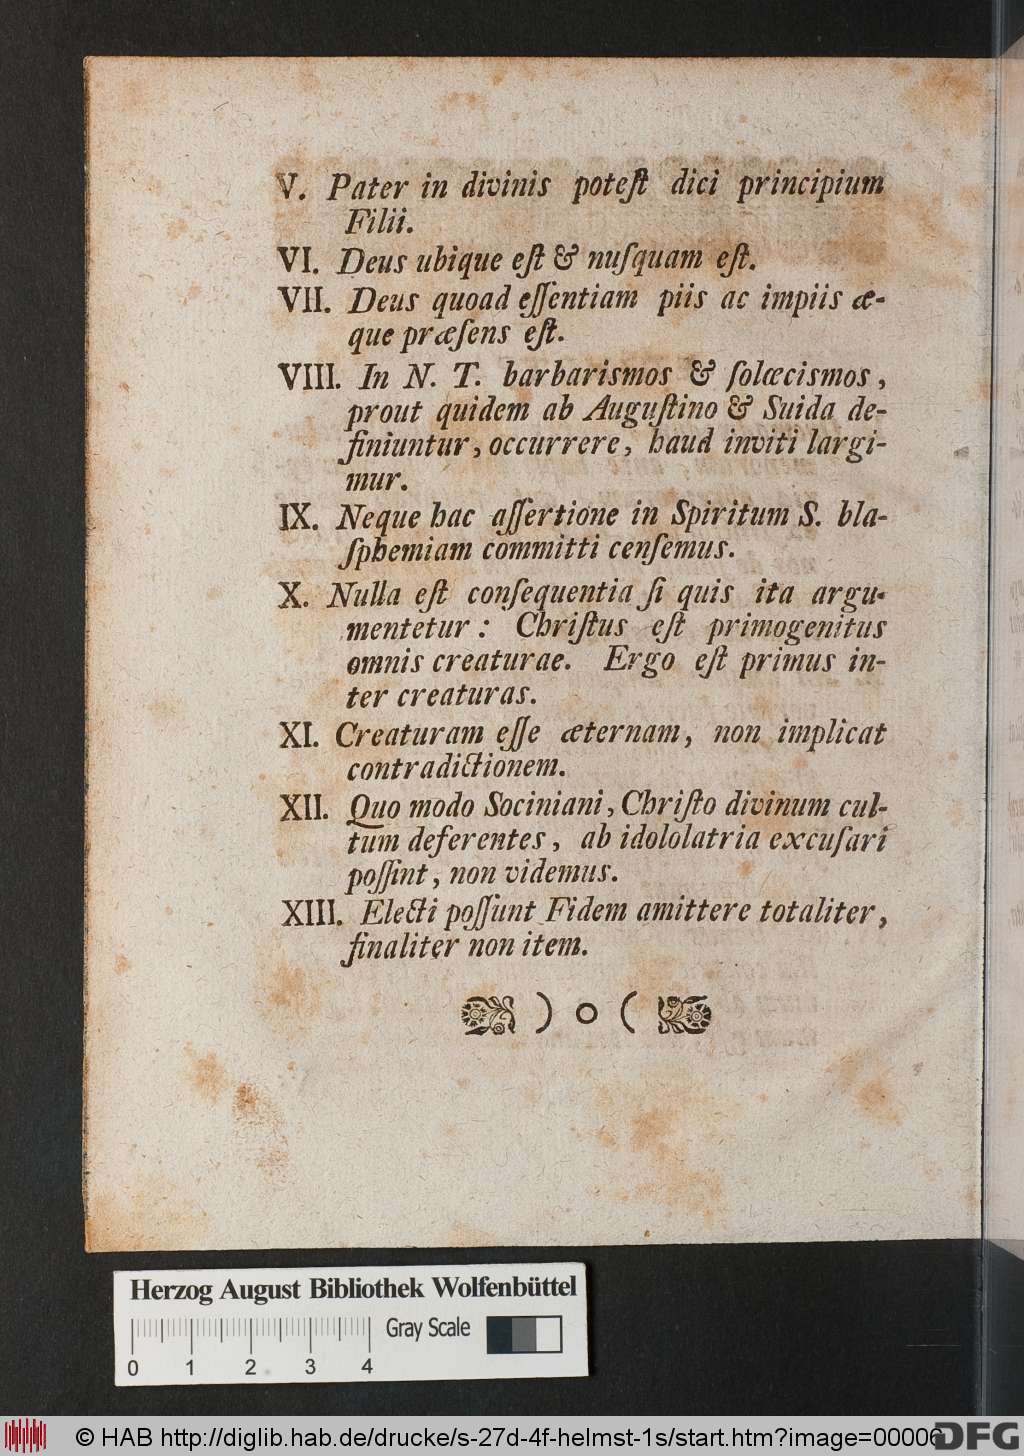 V. Pater in divinis poteſt dici principium
Filii.
VI. Deus ubique eſt & nuſquam eſt.
VII. Deus quoad eſſentiam piis ac impiis æ-
que præſens eſt.
VIII. In N. T. barbarismos & ſolœcismos,
prout quidem ab Auguſtino & Suida de-
finiuntur, occurrere, haud inviti largi-
mur.
IX. Neque hac aſſertione in Spiritum S. bla-
ſphemiam committi cenſemus.
X. Nulla eſt conſequentia ſi quis ita argu-
mentetur: Chriſtus eſt primogenitus
omnis creaturae. Ergo eſt primus in-
ter creaturas.
XI. Creaturam eſſe æternam, non implicat
contradictionem.
XII. Quo modo Sociniani, Chriſto divinum cul-
tum deferentes, ab idololatria excuſari
poſſint, non videmus.
XIII. Electi poſſunt Fidem amittere totaliter,
finaliter non item.
) o (
Herzog August Bibliothek Wolfenbüttel
Gray Scale
0 1 2 3 4
© HAB http://diglib.hab.de/drucke/s-27d-4f-helmst-1s/start.htm?image=00006
DFG